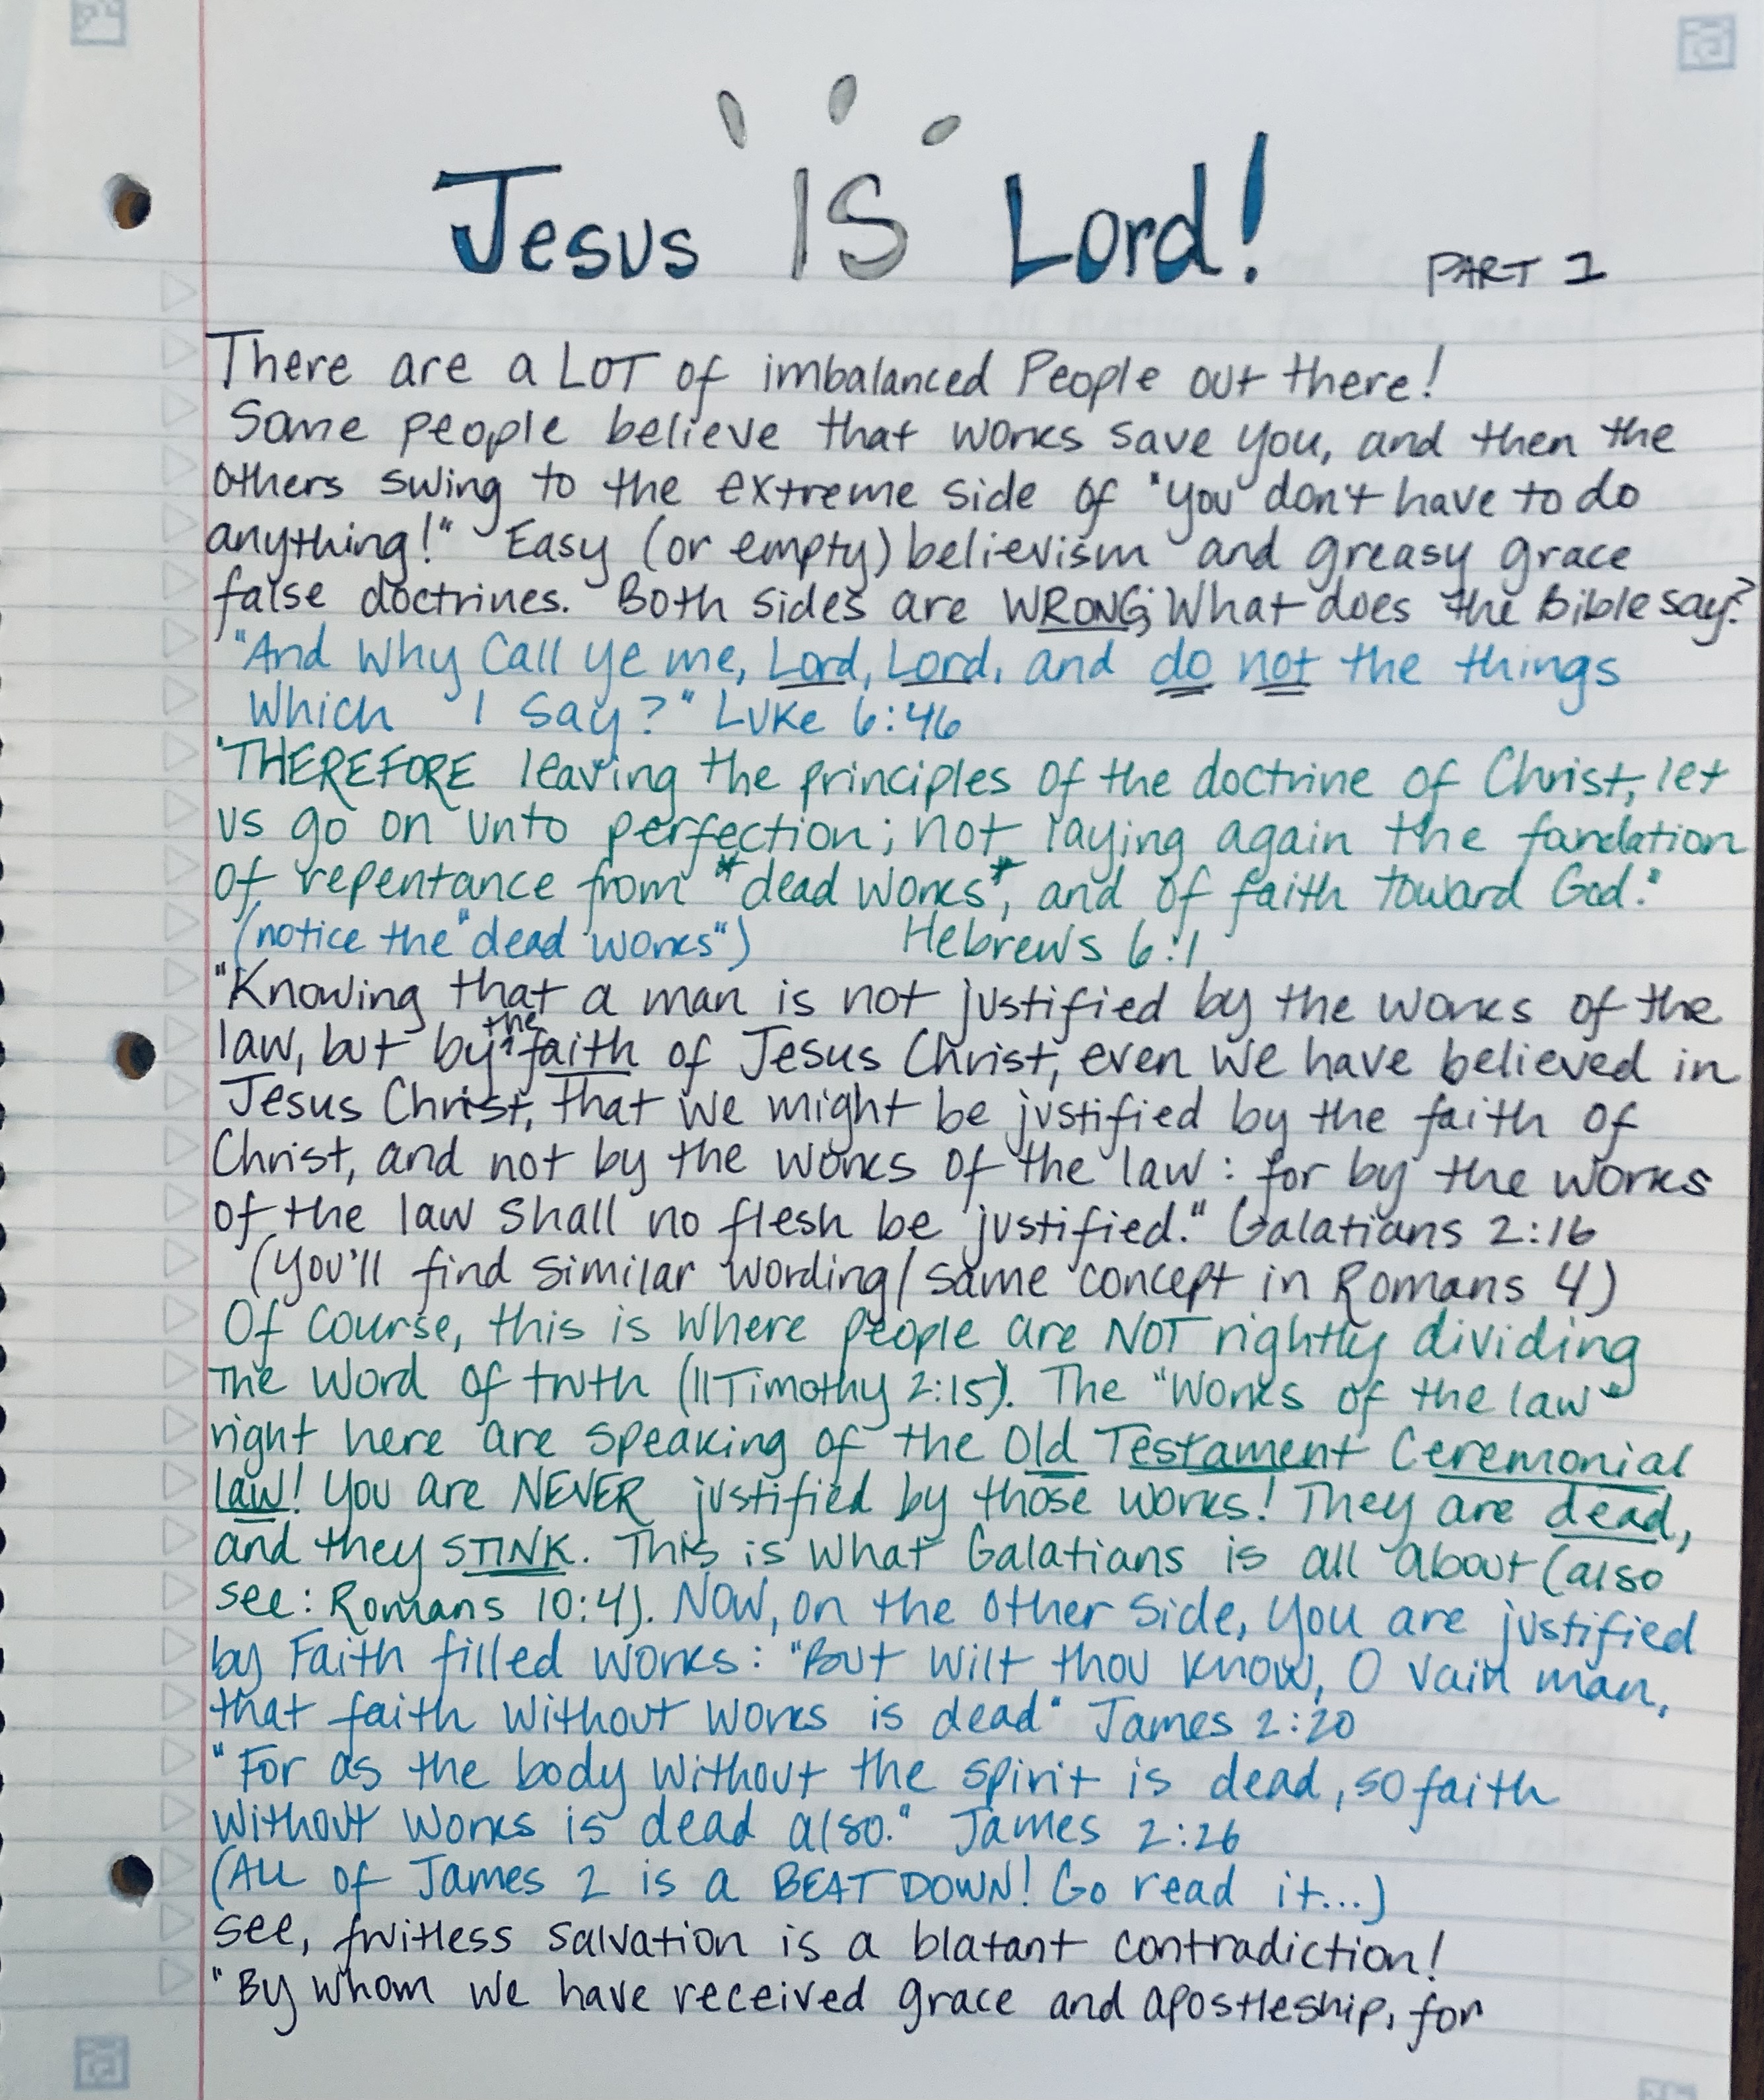 Jesus IS Lord! PART 1
There are a LOT of imbalanced People out there!
Some people believe that works save you, and then the
others swing to the extreme side of "you don't have to do
anything!" Easy (or empty) believism and greasy grace
false doctrines. Both sides are WRONG; What does the Bible say?
"And why call ye me, Lord, Lord, and do not the things
which I say?" Luke 6:46
"THEREFORE leaving the principles of the doctrine of Christ, let
us go on unto perfection; not laying again the fandation
of repentance from *dead works*, and of faith toward God."
(notice the "dead works") Hebrews 6:1
"Knowing that a man is not justified by the works of the
law, but by the faith of Jesus Christ, even we have believed in
Jesus Christ, that we might be justified by the faith of
Christ, and not by the works of the law: for by the works
of the law shall no flesh be justified." Galatians 2:16
(You'll find similar wording/same concept in Romans 4)
Of course, this is where people are NOT rightly dividing
The Word of truth (II Timothy 2:15). The "works of the law"
right here are speaking of the Old Testament Ceremonial
law! You are NEVER justified by those works! They are dead,
and they STINK. This is what Galatians is all about (also
see: Romans 10:4). Now, on the other side, you are justified
by Faith filled works: "But wilt thou know, O vain man,
that faith without works is dead" James 2:20
"For as the body without the spirit is dead, so faith
without works is dead also." James 2:26
(ALL of James 2 is a BEAT DOWN! Go read it...)
See, fruitless salvation is a blatant contradiction!
"By whom we have received grace and apostleship, for